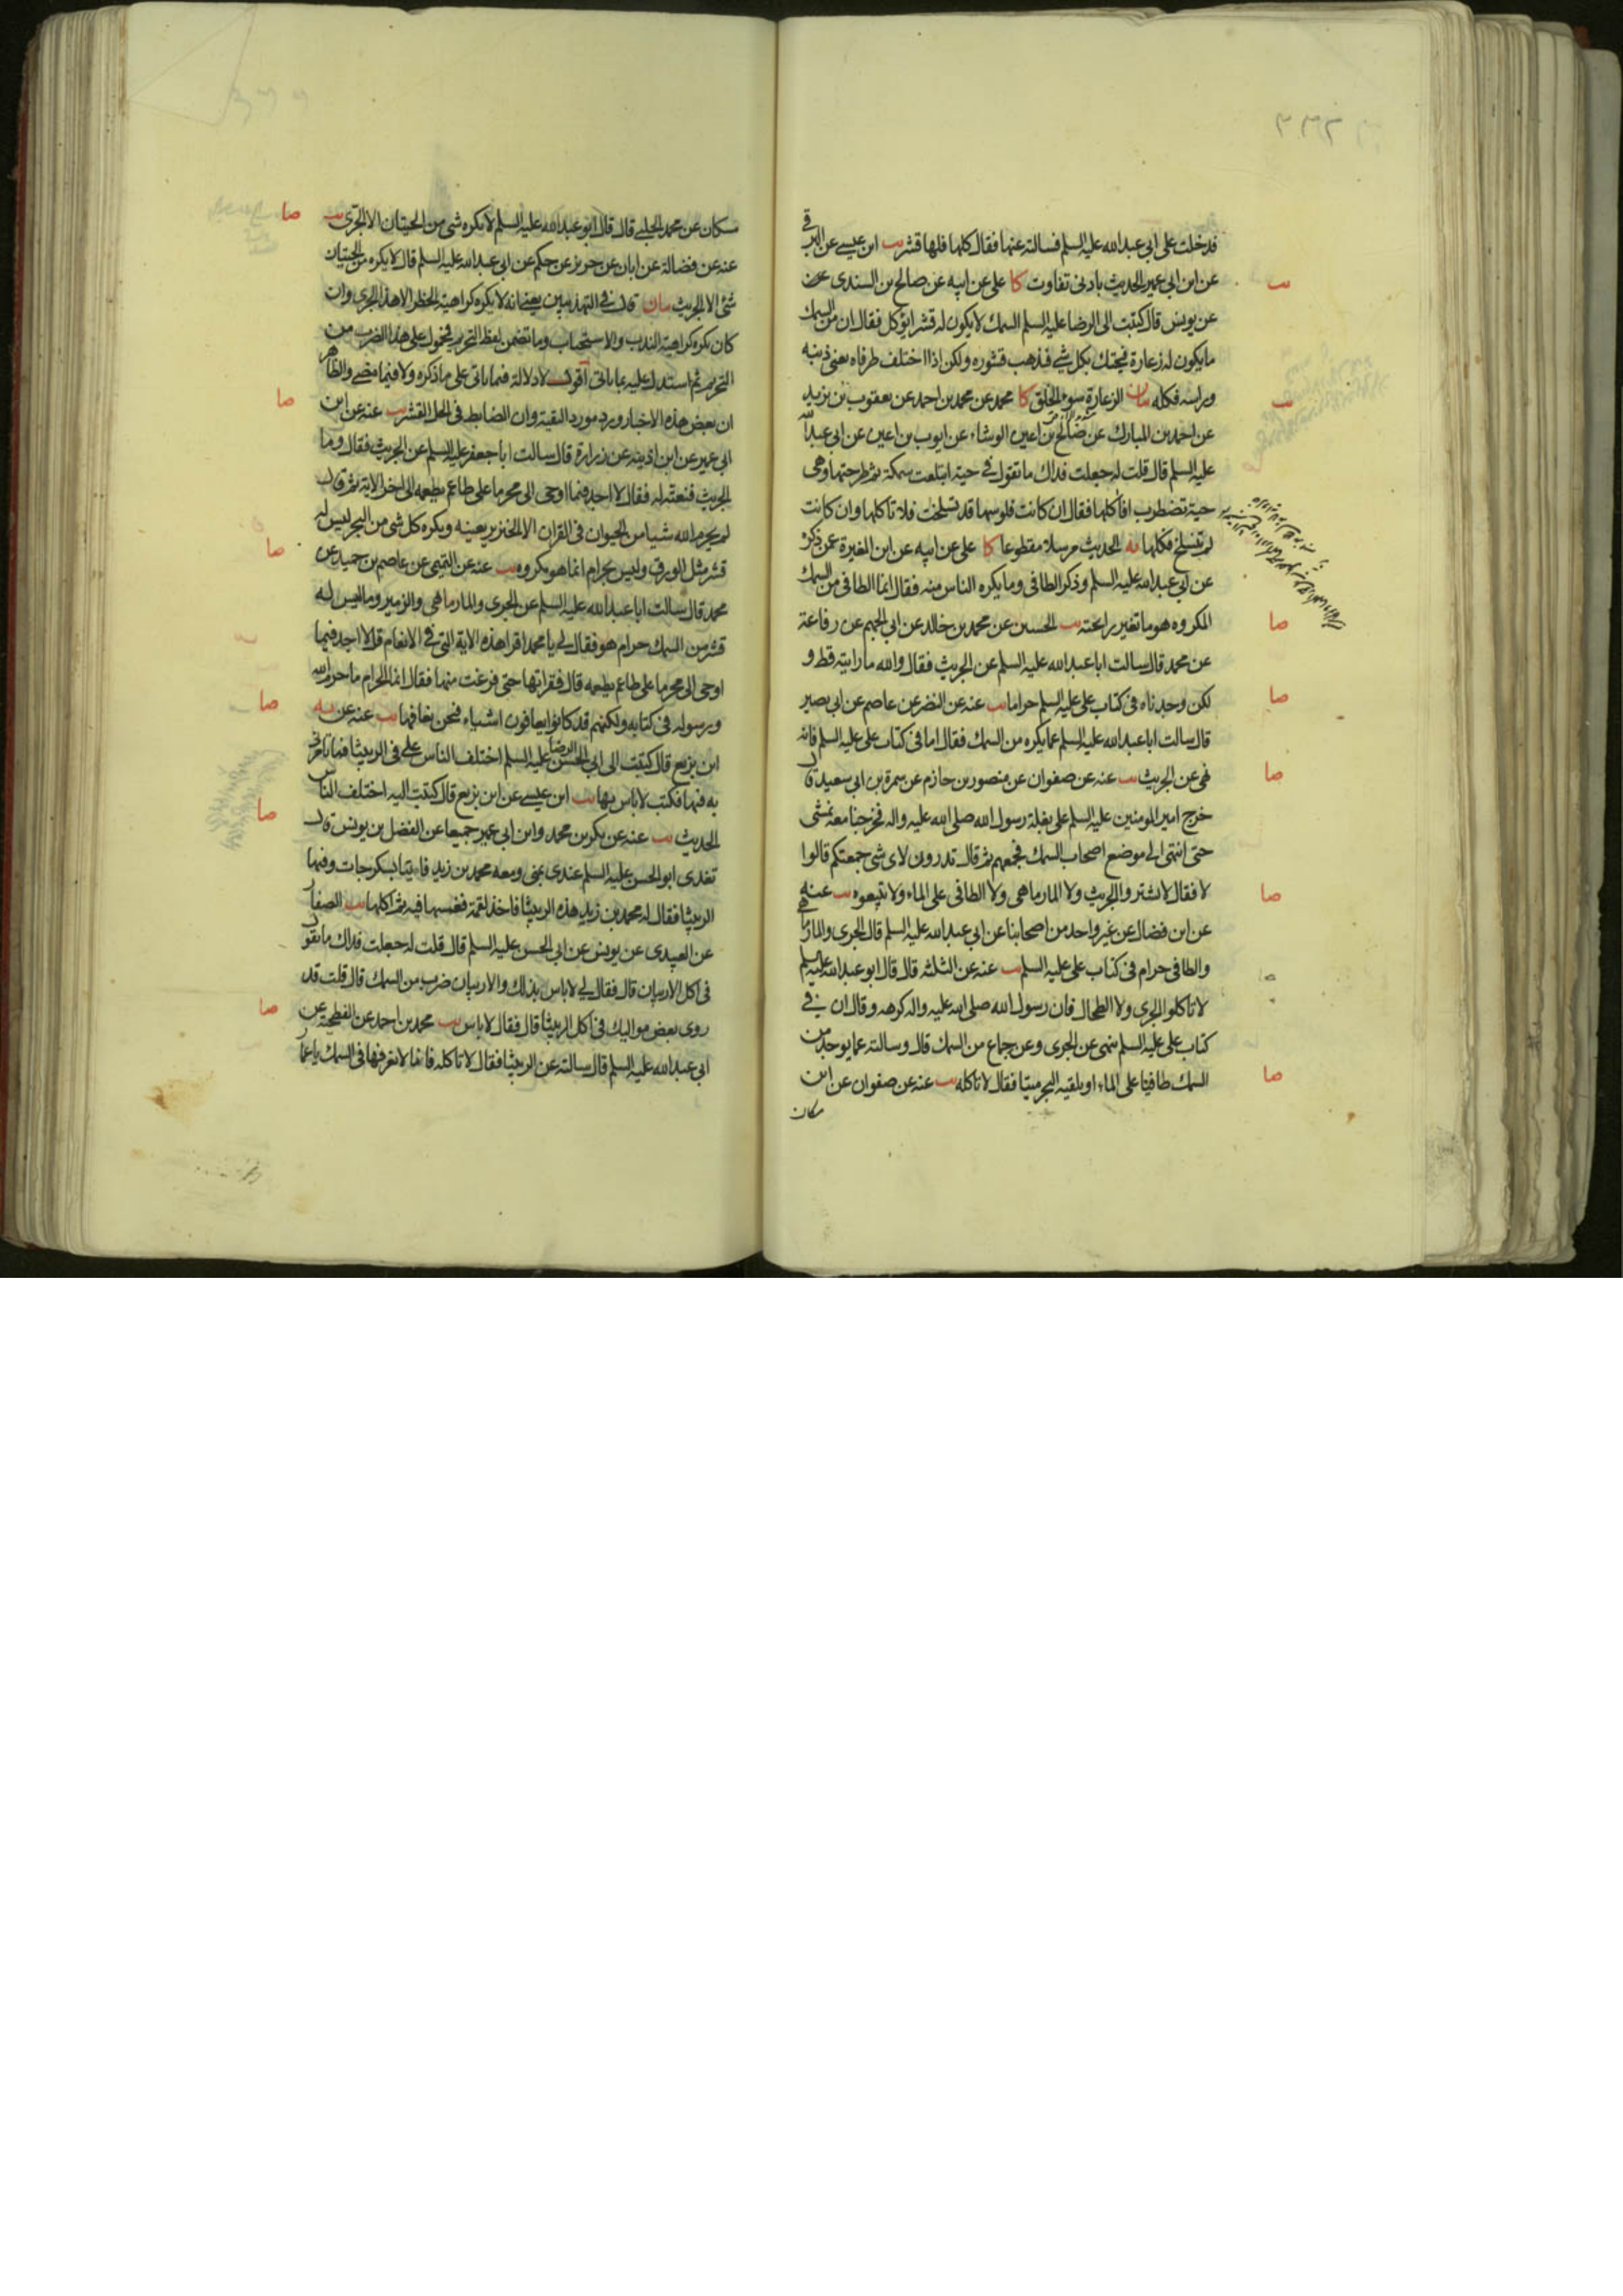 فدخلت على ابي عبد الله عليه السلم فسالته عنها فقال كلها فلها قشر يب ابن عيسى عن البرقي
عن ابن ابي عمير الحديث بادنى تفاوت كا علي عن ابيه عن صالح بن السندي عن
عن يونس قال كتبت الى الرضا عليه السلم السمك لا يكون له قشر ايؤكل فقال ان من السمك
ما يكون له زعارة فيحتك بكل شي فيذهب قشوره ولكن اذا اختلف طرفاه يعني ذنبه
وراسه فكله بيان الزعارة سوء الخلق كا محمد عن محمد بن احمد عن يعقوب بن يزيد
عن احمد بن المبارك عن صالح بن اعين الوشاء عن ايوب بن اعين عن ابي عبد الله
عليه السلم قال قلت له جعلت فداك ما تقول في حية ابتلعت سمكة ثم طرحتها وهي
حية تضطرب افاكلها فقال ان كانت فلوسها قد تسلخت فلا تاكلها وان كانت
لم تنسلخ فكلها يه الحديث مرسلا مقطوعا كا علي عن ابيه عن ابن المغيرة عمن ذكره
عن ابي عبد الله عليه السلم وذكر الطافي وما يكره الناس منه فقال انما الطافي من السمك
المكروه هو ما تغير رايحته يب الحسين عن محمد بن خالد عن ابي الجهم عن رفاعة
عن محمد قال سالت ابا عبد الله عليه السلم عن الجريث فقال والله ما رايته قط و
لكن وجدناه في كتاب علي عليه السلم حراما يب عنه عن النضر عن عاصم عن ابي بصير
قال سالت ابا عبد الله عليه السلم عما يكره من السمك فقال اما في كتاب علي عليه السلم فانه
نهى عن الجريث يب عنه عن صفوان عن منصور بن حازم عن سمرة بن ابي سعيد قال
خرج امير المومنين عليه السلم على بغلة رسول الله صلى الله عليه واله فخرجنا معه نمشي
حتى انتهى الى موضع اصحاب السمك فجمعهم ثم قال تدرون لاي شي جمعتكم قالوا
لا فقال لا تشتروا الجريث ولا المارماهي ولا الطافي على الماء ولا تبيعوه يب عنه
عن ابن فضال عن غير واحد من اصحابنا عن ابي عبد الله عليه السلم قال الجري والمارماهي
والطافي حرام في كتاب علي عليه السلم يب عنه عن الثلثة قال قال ابو عبد الله عليه السلم
لا تاكلوا الجري ولا الطحال فان رسول الله صلى الله عليه واله كرهه وقال ان في
كتاب علي عليه السلم ينهى عن الجري وعن جماع من السمك قال وسالته عما يوجد من
السمك طافيا على الماء او يلقيه البحر ميتا فقال لا تاكله يب عنه عن صفوان عن ابن
مسكان
مسكان عن محمد الحلبي قال قال ابو عبد الله عليه السلم لا يكره شي من الحيتان الا الجري يب
عنه عن فضالة عن ابان عن حريز عن حكم عن ابي عبد الله عليه السلم قال لا يكره من الحيتان
شئ الا الجريث بيان قال في التهذيبين يعني انه لا يكره كراهية الحظر الا هذا الجري وان
كان يكره كراهية الندب والاستحباب وما تضمن لفظ التحريم محمول على هذا الضرب من
التحريم ثم استدل عليه بما ياتي اقول لا دلالة فيما ياتي على ما ذكره ولا فيما مضى والظاهر
ان بعض هذه الاخبار ورد مورد التقية وان الضابط في الحل القشر يب عنه عن ابن
ابي عمير عن ابن اذينه عن زرارة قال سالت ابا جعفر عليه السلم عن الجريث فقال وما
الجريث فنعته له فقال لا اجد فيما اوحي الى محرما على طاعم يطعمه الى اخر الاية ثم قال
لم يحرم الله شيا من الحيوان في القران الا الخنزير بعينه ويكره كل شي من البحر ليس له
قشر مثل الورق وليس بحرام انما هو مكروه يب عنه عن التميمي عن عاصم بن حميد عن
محمد قال سالت ابا عبد الله عليه السلم عن الجري والمارماهي والزمير وما ليس له
قشر من السمك حرام هو فقال لي يا محمد اقرا هذه الاية التي في الانعام قل لا اجد فيما
اوحي الى محرما على طاعم يطعمه قال فقراتها حتى فرغت منها فقال انما الحرام ما حرم الله
ورسوله في كتابه ولكنهم قد كانوا يعافون اشياء فنحن نعافها يب عنه عن يه
ابن بزيع قال كتبت الى ابي الحسن الرضا عليه السلم اختلف الناس علي في الربيثا فما تامرني
به فيها فكتب لا باس بها يب ابن عيسى عن ابن بزيع قال كتبت اليه اختلف الناس
الحديث يب عنه عن بكر بن محمد وابن ابي عمير جميعا عن الفضل بن يونس قال
تغدى ابو الحسن عليه السلم عندي بمنى ومعه محمد بن زيد فاتينا بسكرجات وفيها
الربيثا فقال له محمد بن زيد هذه الربيثا فاخذ لقمة فغمسها فيه ثم اكلها يب الصفار
عن العبيدي عن يونس عن ابي الحسن عليه السلم قال قلت له جعلت فداك ما تقول
في اكل الاربيان قال فقال لي لا باس بذلك والاربيان ضرب من السمك قال قلت قد
روى بعض مواليك في اكل الربيثا قال فقال لا باس يب محمد بن احمد عن الفطحية عن
ابي عبد الله عليه السلم قال سالته عن الربيثا فقال لا تاكله فانا لا نعرفها في السمك يا عمار